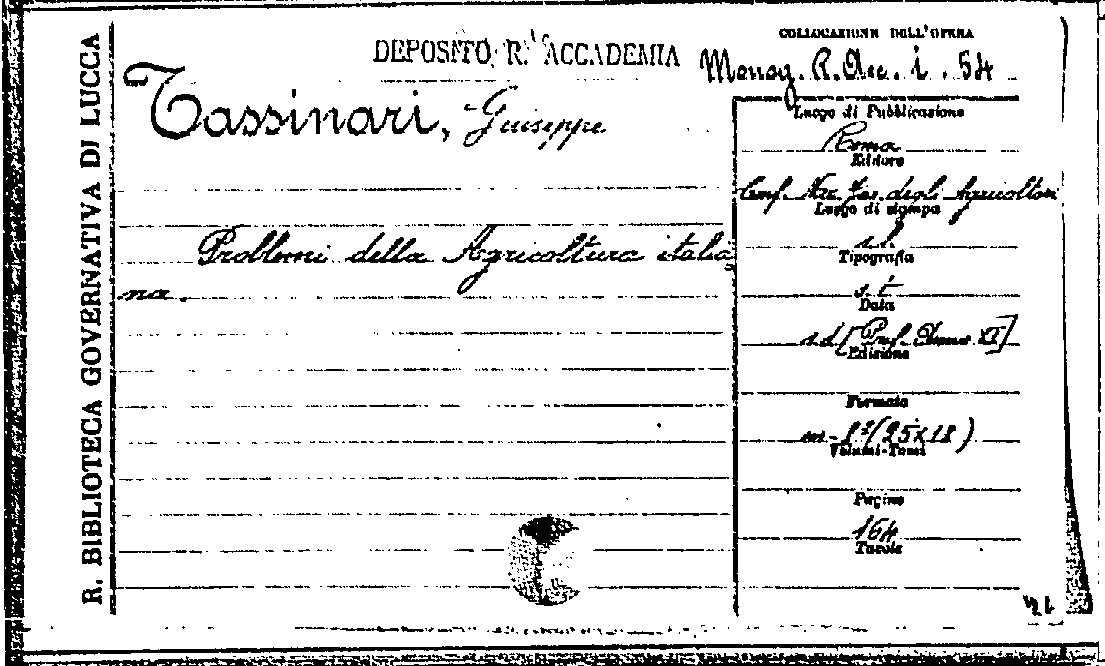 R. BIBLIOTECA GOVERNATIVA DI LUCCA
DEPOSITO R. ACCADEMIA
COLLOCAZIONE DELL'OPERA
Monog. R. Ac. i. 54
Tassinari, Giuseppe
Problemi della Agricoltura italia
na.
Luogo di Pubblicazione
Roma
Editore
Conf. Naz. Fas. degli Agricoltori
Luogo di stampa
s. l.
Tipografia
s. t.
Data
s. d. [Pref. Anno XI]
Edizione
Formato
in-8° (25x18)
Volumi-Tomi
Pagine
164
Tavole